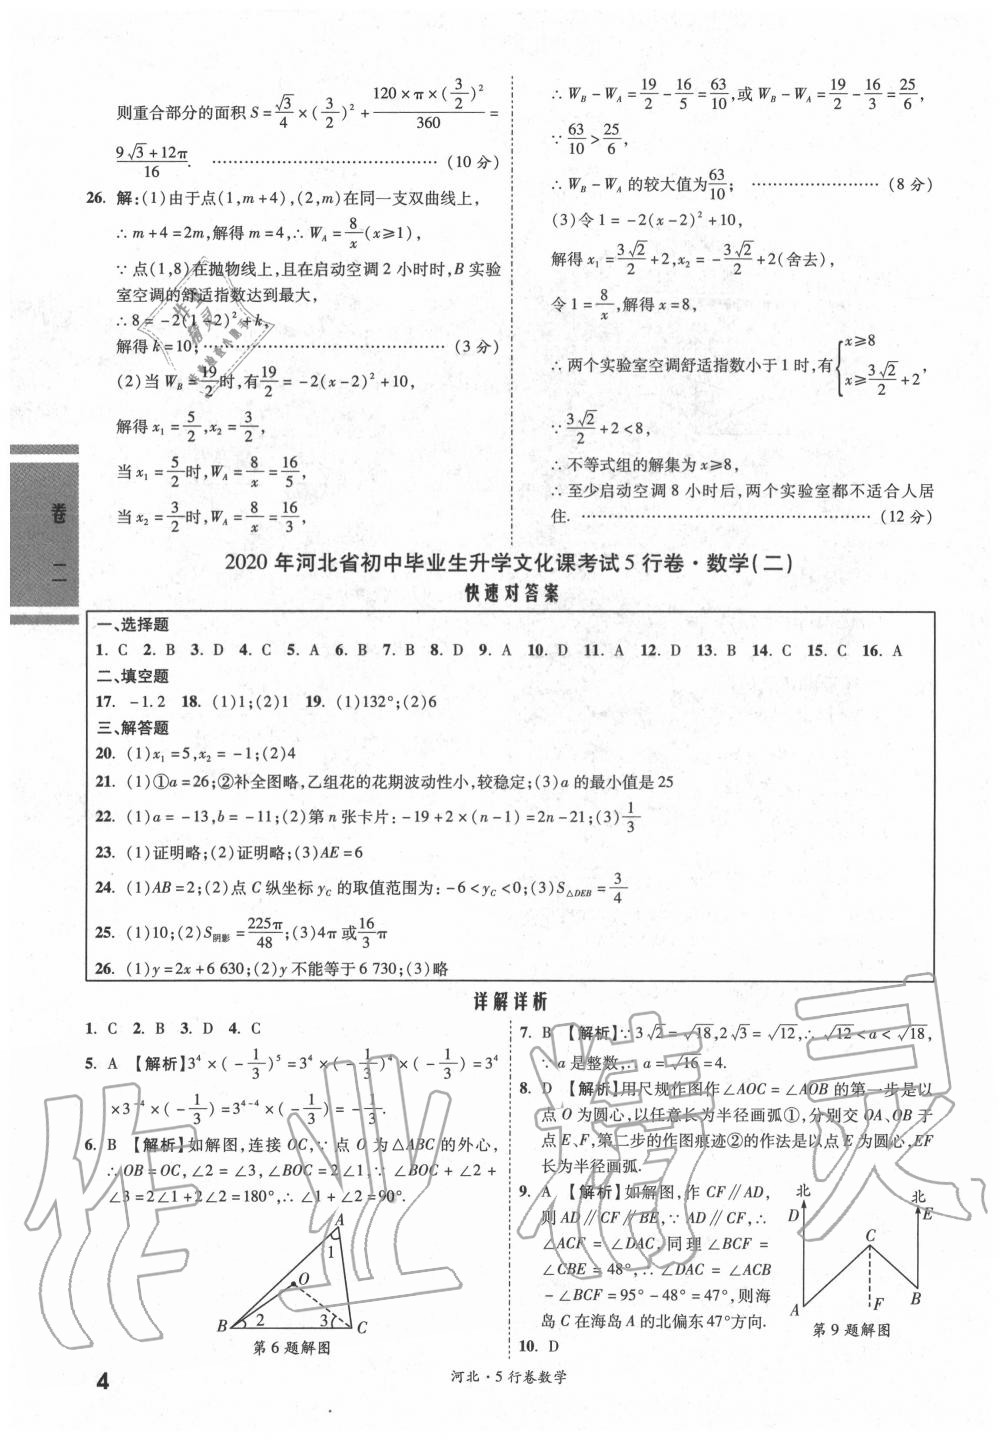 则重合部分的面积 S = √3/4 × (3/2)² + 120×π×(3/2)²/360 =
(9√3+12π)/16. …………………………………… (10 分)
26. 解:(1)由于点(1,m+4),(2,m)在同一支双曲线上,
∴ m+4=2m,解得 m=4,∴ W_A = 8/x (x≥1),
∵ 点(1,8)在抛物线上,且在启动空调 2 小时时,B 实验
室空调的舒适指数达到最大,
∴ 8 = -2(1-2)²+k,
解得 k=10; …………………………………… (3 分)
(2)当 W_B = 19/2 时,有 19/2 = -2(x-2)²+10,
解得 x₁ = 5/2, x₂ = 3/2,
当 x₁ = 5/2 时, W_A = 8/x = 16/5,
当 x₂ = 3/2 时, W_A = 8/x = 16/3,
∴ W_B - W_A = 19/2 - 16/5 = 63/10,或 W_B - W_A = 19/2 - 16/3 = 25/6,
∵ 63/10 > 25/6,
∴ W_B - W_A 的较大值为 63/10; …………………… (8 分)
(3)令 1 = -2(x-2)²+10,
解得 x₁ = 3√2/2 +2, x₂ = -3√2/2 +2(舍去),
令 1 = 8/x,解得 x=8,
∴ 两个实验室空调舒适指数小于 1 时,有 { x≥8
x≥3√2/2+2,
∵ 3√2/2 +2<8,
∴ 不等式组的解集为 x≥8,
∴ 至少启动空调 8 小时后,两个实验室都不适合人居
住. ……………………………………………… (12 分)
卷
二
2020 年河北省初中毕业生升学文化课考试 5 行卷·数学(二)
快速对答案
一、选择题
1. C 2. B 3. D 4. C 5. A 6. B 7. B 8. D 9. A 10. D 11. A 12. D 13. B 14. C 15. C 16. A
二、填空题
17. -1.2 18. (1)1;(2)1 19. (1)132°;(2)6
三、解答题
20. (1)x₁=5,x₂=-1;(2)4
21. (1)①a=26;②补全图略,乙组花的花期波动性小,较稳定;(3)a 的最小值是 25
22. (1)a=-13,b=-11;(2)第 n 张卡片:-19+2×(n-1)=2n-21;(3)1/3
23. (1)证明略;(2)证明略;(3)AE=6
24. (1)AB=2;(2)点 C 纵坐标 y_C 的取值范围为:-6<y_C<0;(3)S△DEB = 3/4
25. (1)10;(2)S阴影 = 225π/48;(3)4π 或 16/3 π
26. (1)y=2x+6 630;(2)y 不能等于 6 730;(3)略
详解详析
1. C 2. B 3. D 4. C
5. A 【解析】3⁴×(-1/3)⁵=3⁴×(-1/3)⁴×(-1/3)=3⁴
×3⁻⁴×(-1/3)=3⁴⁻⁴×(-1/3)=-1/3.
6. B 【解析】如解图,连接 OC,∵ 点 O 为△ABC 的外心,
∴ OB=OC,∠2=∠3,∠BOC=2∠1,∵ ∠BOC+∠2+
∠3=2∠1+2∠2=180°,∴ ∠1+∠2=90°.
A
1
O
2
3
B
C
第 6 题解图
7. B 【解析】∵ 3√2=√18,2√3=√12,∴ √12<a<√18,
∵ a 是整数,∴ a=√16=4.
8. D 【解析】用尺规作图作∠AOC=∠AOB 的第一步是以
点 O 为圆心,以任意长为半径画弧①,分别交 OA、OB 于
点 E、F,第二步的作图痕迹②的作法是以点 E 为圆心,EF
长为半径画弧.
9. A 【解析】如解图,作 CF∥AD,
则 AD∥CF∥BE,∵ AD∥CF,∴
∠ACF=∠DAC,同理∠BCF=
∠CBE=48°,∴ ∠DAC=∠ACB
-∠BCF=95°-48°=47°,则海
岛 C 在海岛 A 的北偏东 47°方向.
北
北
D
E
C
A
F
B
第 9 题解图
10. D
4
河北·5 行卷数学
作业精灵